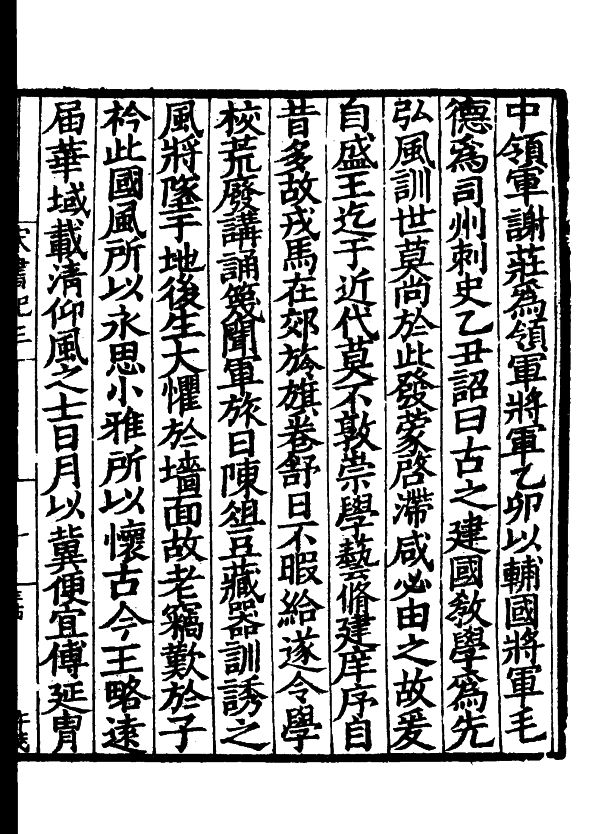 中領軍謝莊為領軍將軍乙卯以輔國將軍毛
德為司州刺史乙丑詔曰古之建國教學為先
弘風訓世莫尚於此發蒙啓滯咸必由之故爰
自盛王迄于近代莫不敦崇學藝脩建庠序自
昔多故戎馬在郊旍旗卷舒日不暇給遂令學
校荒廢講誦篾聞軍旅日陳俎豆藏器訓誘之
風將墜于地後生大懼於墻面故老竊歎於子
衿此國風所以永思小雅所以懷古今王略遠
届華域載清仰風之士日月以冀便宜博延胄